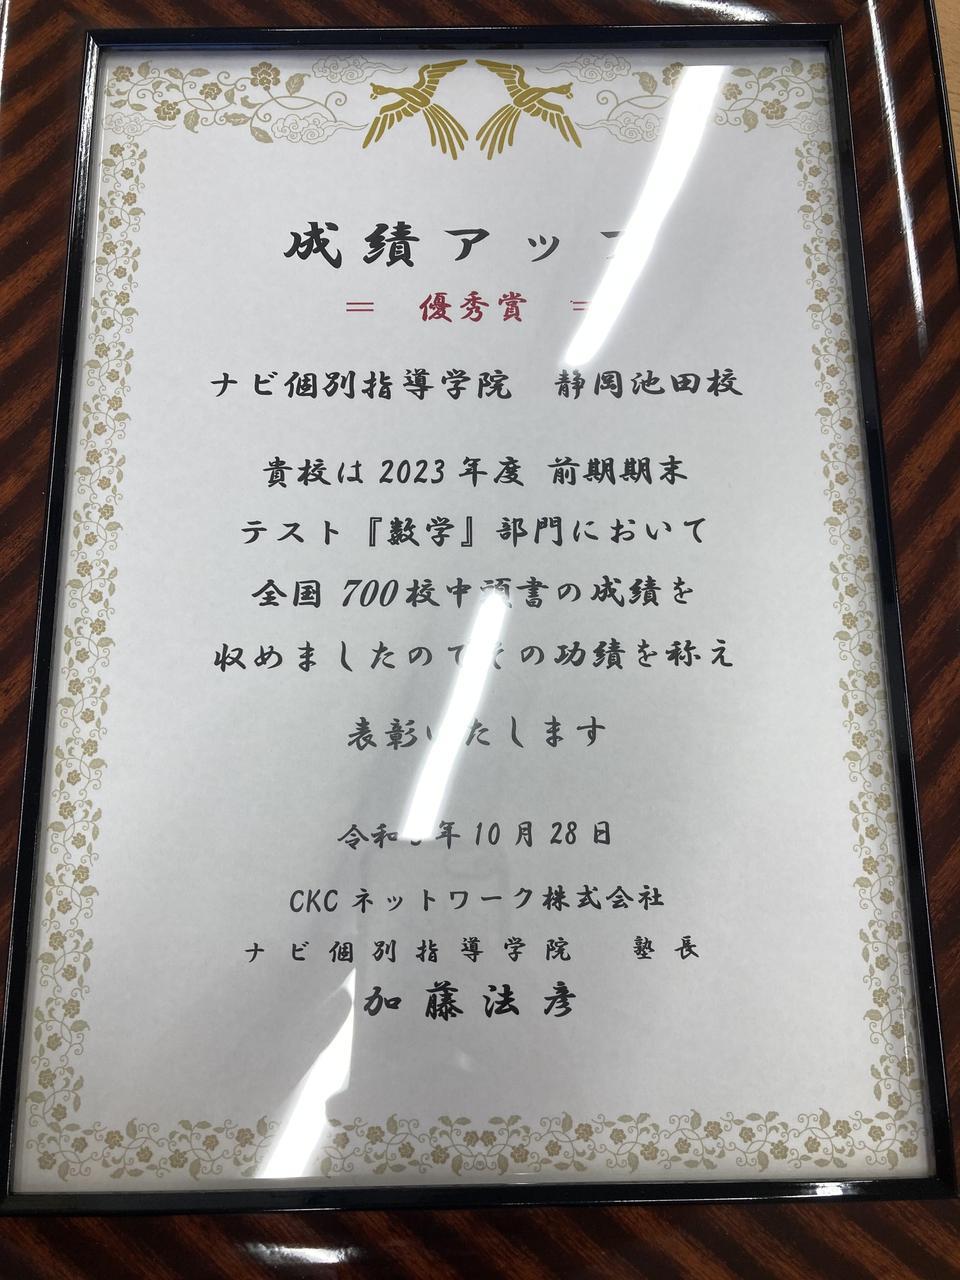 成績アッ
＝ 優秀賞 ＝
ナビ個別指導学院 静岡池田校
貴校は 2023 年度 前期期末
テスト『数学』部門において
全国 700校中頭書の成績を
収めましたのでその功績を称え
表彰いたします
令和 年 10 月 28 日
CKC ネットワーク株式会社
ナビ個別指導学院 塾長
加藤法彦